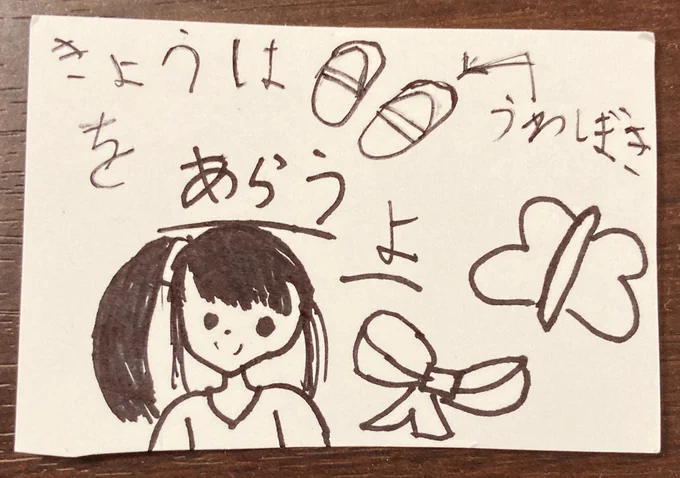 きょうは
うわばき
を
あらう
よ